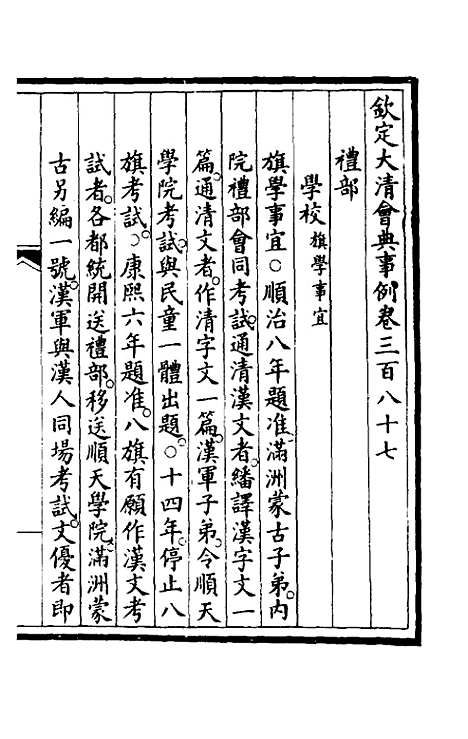 欽定大清會典事例卷三百八十七
禮部
學校旗學事宜
旗學事宜○順治八年題准滿洲蒙古子弟。內
院禮部會同考試。通清漢文者。繙譯漢字文一
篇。通清文者。作清字文一篇。漢軍子弟。令順天
學院考試。與民童一體出題。○十四年。停止八
旗考試。○康熙六年題准。八旗有願作漢文考
試者。各都統開送禮部。移送順天學院。滿洲蒙
古另編一號。漢軍與漢人同場考試。文優者即